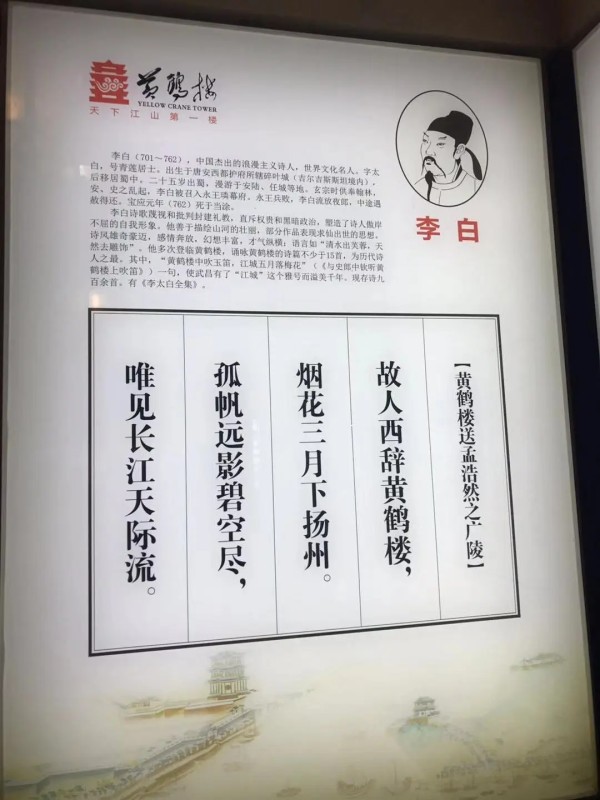 黄鹤楼
YELLOW CRANE TOWER
天下江山第一楼
李白
李白（701～762），中国杰出的浪漫主义诗人，世界文化名人，字太
白，号青莲居士。出生于唐安西都护府所辖碎叶城（吉尔吉斯斯坦境内），
后移居蜀中。二十五岁出蜀，漫游于安陆、任城等地。玄宗时供奉翰林，
安、史之乱起，李白被召入永王璘幕府。永王兵败，李白流放夜郎，中途遇
赦得还。宝应元年（762）死于当涂。
李白诗歌蔑视和批判封建礼教，直斥权贵和黑暗政治，塑造了诗人傲岸
不屈的自我形象。他善于描绘山河的壮丽，部分作品表现求仙出世的思想。
诗风雄奇豪迈，感情奔放，幻想丰富，才气纵横；语言如“清水出芙蓉，天
然去雕饰”。他多次登临黄鹤楼，诵咏黄鹤楼的诗篇不少于15首，为历代诗
人之最。其中，“黄鹤楼中吹玉笛，江城五月落梅花”（《与史郎中钦听黄
鹤楼上吹笛》）一句，使武昌有了“江城”这个雅号而溢美千年。现存诗九
百余首，有《李太白全集》。
【黄鹤楼送孟浩然之广陵】
故人西辞黄鹤楼，
烟花三月下扬州。
孤帆远影碧空尽，
唯见长江天际流。